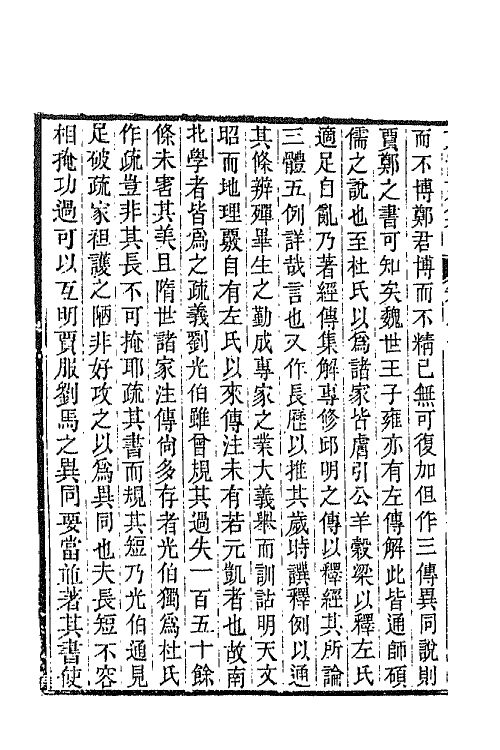 而不博鄭君博而不精已無可復加但作三傳異同說則
賈鄭之書可知矣魏世王子雍亦有左傳解此皆通師碩
儒之說也至杜氏以爲諸家皆膚引公羊穀梁以釋左氏
適足自亂乃著經傳集解專修邱明之傳以釋經其所論
三體五例詳哉言也又作長歷以推其歲時譔釋例以通
其條辨殫畢生之勤成專家之業大義舉而訓詁明天文
昭而地理覈自有左氏以來傳注未有若元凱者也故南
北學者皆爲之疏義劉光伯雖曾規其過失一百五十餘
條未害其美且隋世諸家注傳尙多存者光伯獨爲杜氏
作疏豈非其長不可掩耶疏其書而規其短乃光伯通見
足破疏家袒護之陋非好攻之以爲異同也夫長短不容
相掩功過可以互明賈服劉馬之異同要當並著其書使